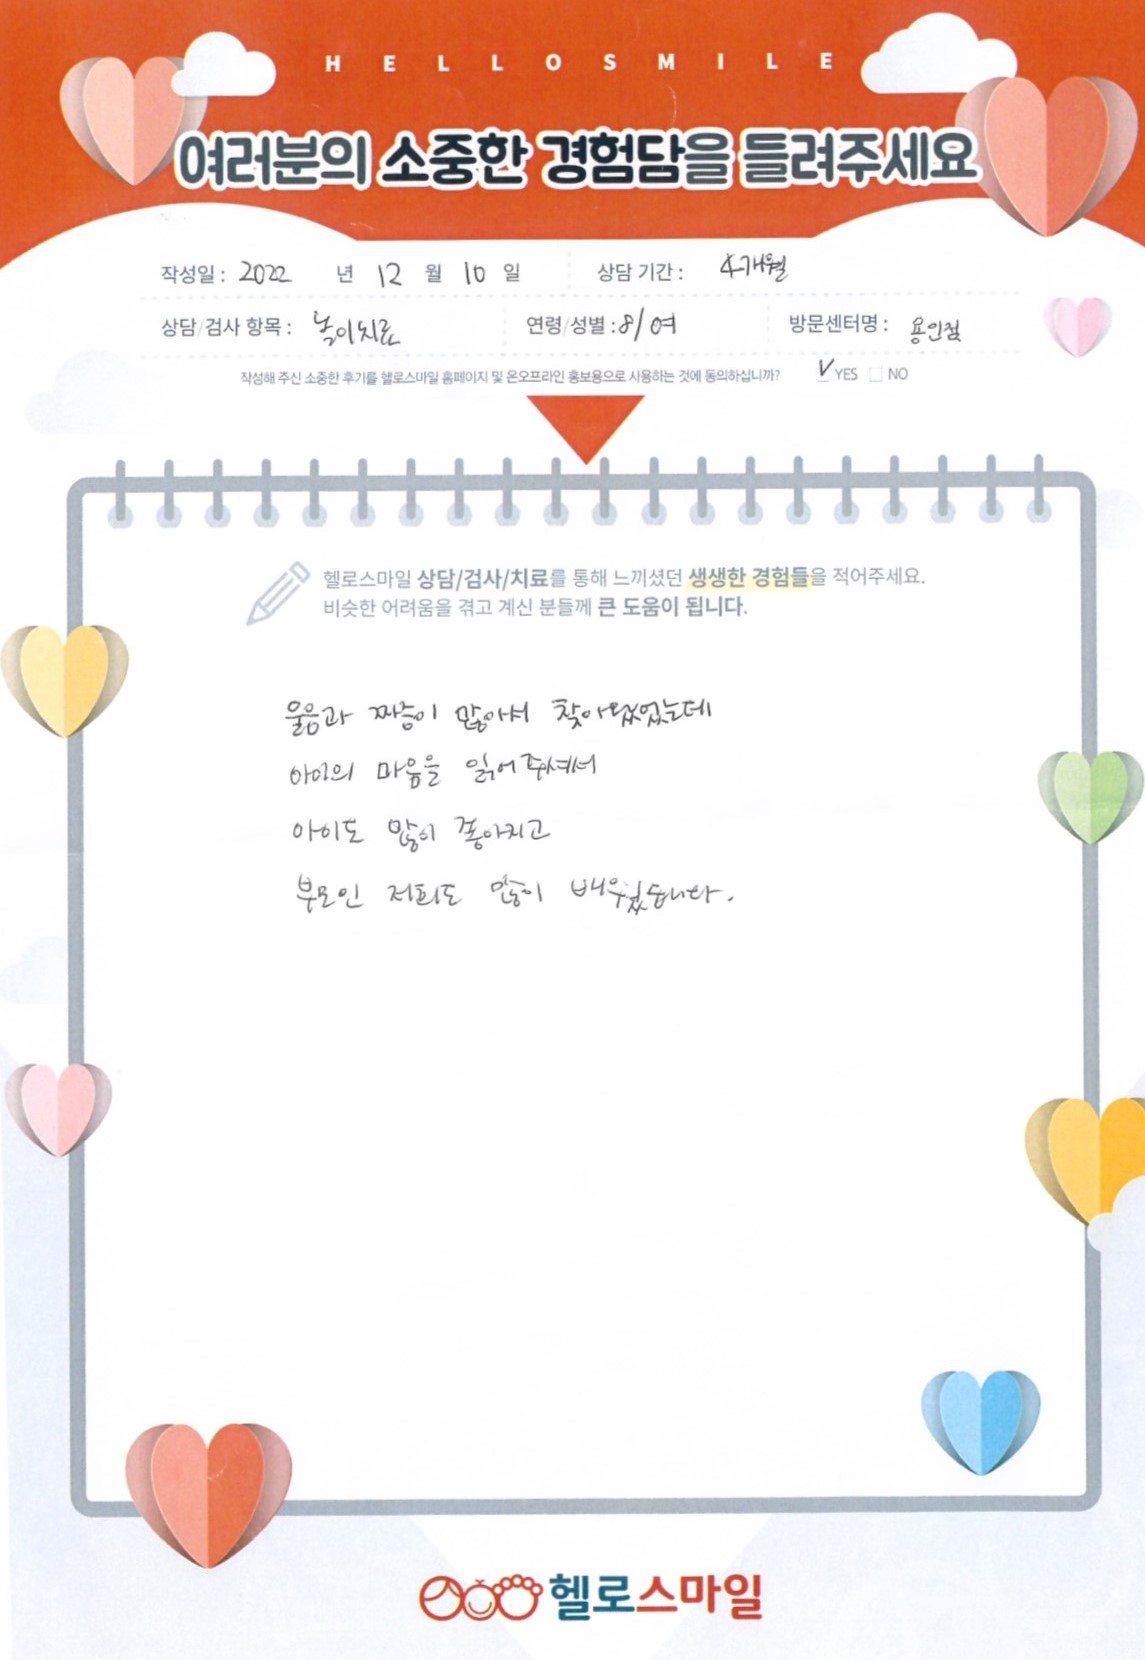 HELLOSMILE
여러분의 소중한 경험담을 들려주세요
작성일 : 2022 년 12 월 10 일 상담 기간 : 4개월
상담/검사 항목 : 놀이치료 연령/성별 : 8/여 방문센터명 : 용인점
작성해 주신 소중한 후기를 헬로스마일 홈페이지 및 온오프라인 홍보용으로 사용하는 것에 동의하십니까? YES NO
헬로스마일 상담/검사/치료를 통해 느끼셨던 생생한 경험들을 적어주세요.
비슷한 어려움을 겪고 계신 분들께 큰 도움이 됩니다.
울음과 짜증이 많아서 찾아뵜었는데
아이의 마음을 읽어주셔서
아이도 많이 좋아지고
부모인 저희도 많이 배우웠습니다.
헬로스마일